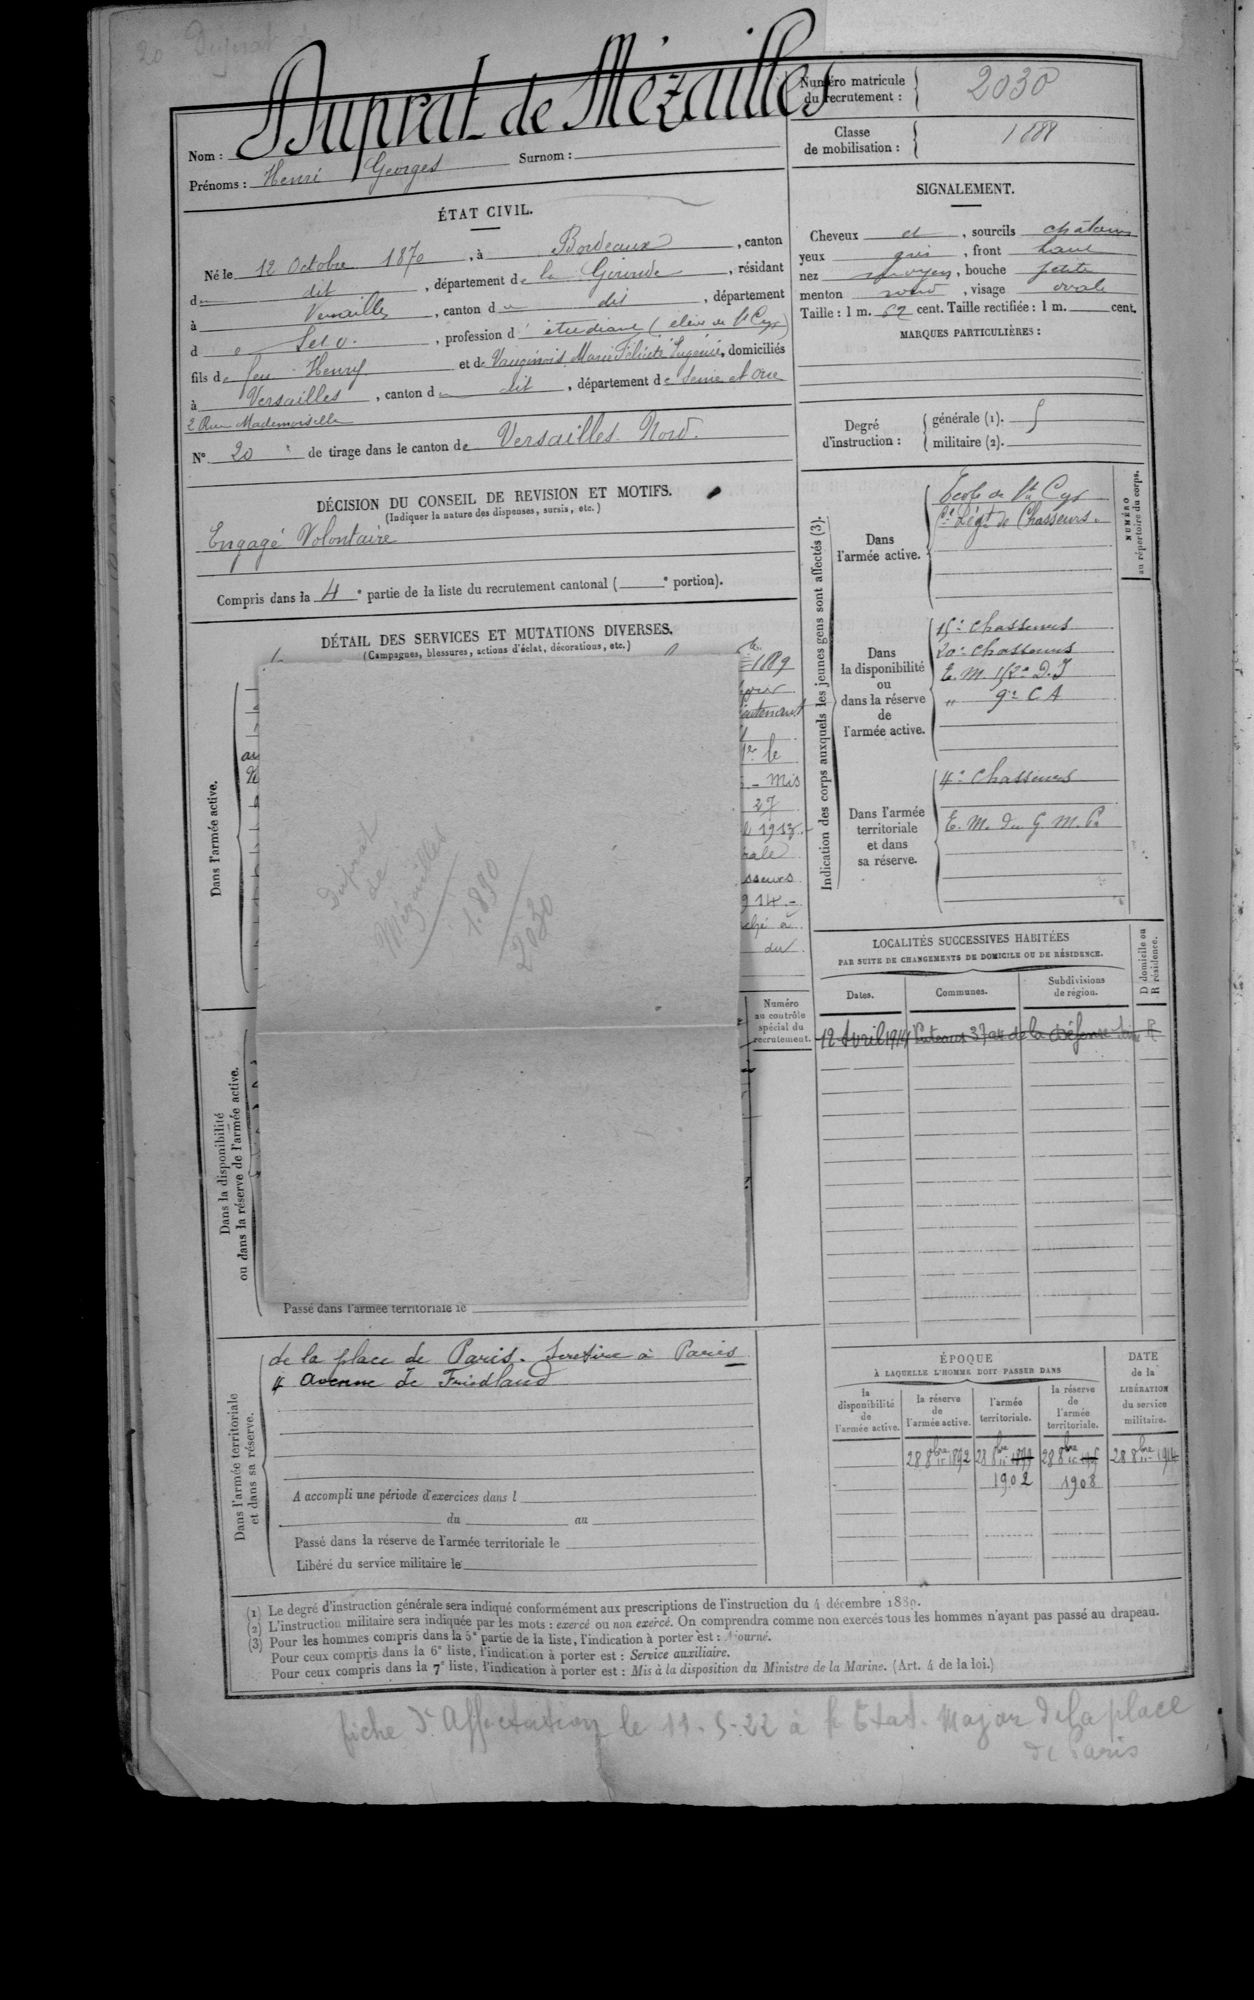 Duprat de Mézailles
Nom :
Prénoms : Henri Georges Surnom :
Numéro matricule du recrutement : 2030
Classe de mobilisation : 1888
ÉTAT CIVIL.
Né le 12 Octobre 1870, à Bordeaux, canton
du dit, département de la Gironde, résidant
à Versailles, canton du dit, département
d S et O., profession d'étudiant (élève de St Cyr)
fils de feu Henry et de Marie Félicité Eugénie, domiciliés
à Versailles, canton du dit, département de Seine et Oise
2 Rue Mademoiselle
N° 20 de tirage dans le canton de Versailles Nord.
DÉCISION DU CONSEIL DE REVISION ET MOTIFS.
(Indiquer la nature des dispenses, sursis, etc.)
Engagé Volontaire
Compris dans la 4e partie de la liste du recrutement cantonal ( e portion).
DÉTAIL DES SERVICES ET MUTATIONS DIVERSES.
(Campagnes, blessures, actions d'éclat, décorations, etc.)
Dans l'armée active.
1889
le
- Mis
27
1913.
sseurs
914.-
à
du
Duprat
de
Mézailles
1.890
2030
Numéro
au contrôle
spécial du
recrutement.
Dans la disponibilité
ou dans la réserve de l'armée active.
Passé dans l'armée territoriale le
Dans l'armée territoriale
et dans sa réserve.
de la place de Paris. Se retire à Paris
4 Avenue de Friedland
A accompli une période d'exercices dans l
du au
Passé dans la réserve de l'armée territoriale le
Libéré du service militaire le
SIGNALEMENT.
Cheveux et, sourcils châtains
yeux gris, front haut
nez moyen, bouche petite
menton rond, visage ovale
Taille : 1 m. 62 cent. Taille rectifiée : 1 m. cent.
MARQUES PARTICULIÈRES :
Degré d'instruction :
générale (1). 5
militaire (2).
Indication des corps auxquels les jeunes gens sont affectés (3).
NUMÉRO
au répertoire du corps.
Dans
l'armée active.
Ecole de St Cyr
Régt de Chasseurs.
Dans
la disponibilité
ou
dans la réserve
de
l'armée active.
15e Chasseurs
20e Chasseurs
E. M. 152e D. I
" 9e C A
Dans l'armée
territoriale
et dans
sa réserve.
4e Chasseurs
E. M. du G. M. P.
LOCALITÉS SUCCESSIVES HABITÉES
PAR SUITE DE CHANGEMENTS DE DOMICILE OU DE RÉSIDENCE.
D domicile ou
R résidence.
Dates. Communes. Subdivisions de région.
12 Avril 1914 Puteaux 37 av de la Défense Seine R
ÉPOQUE
À LAQUELLE L'HOMME DOIT PASSER DANS
DATE
de la
LIBÉRATION
du service
militaire.
la
disponibilité
de
l'armée active.
la réserve
de
l'armée active.
l'armée
territoriale.
la réserve
de
l'armée
territoriale.
28 8bre 1892 28 8bre 1899 28 8bre 28 8bre 1914
1902 1908
(1) Le degré d'instruction générale sera indiqué conformément aux prescriptions de l'instruction du 4 décembre 1889.
(2) L'instruction militaire sera indiquée par les mots : exercé ou non exercé. On comprendra comme non exercés tous les hommes n'ayant pas passé au drapeau.
(3) Pour les hommes compris dans la 5e partie de la liste, l'indication à porter est : Ajourné.
Pour ceux compris dans la 6e liste, l'indication à porter est : Service auxiliaire.
Pour ceux compris dans la 7e liste, l'indication à porter est : Mis à la disposition du Ministre de la Marine. (Art. 4 de la loi.)
fiche d'Affectation le 11-5-22 à l'Etat-Major de la place
de Paris